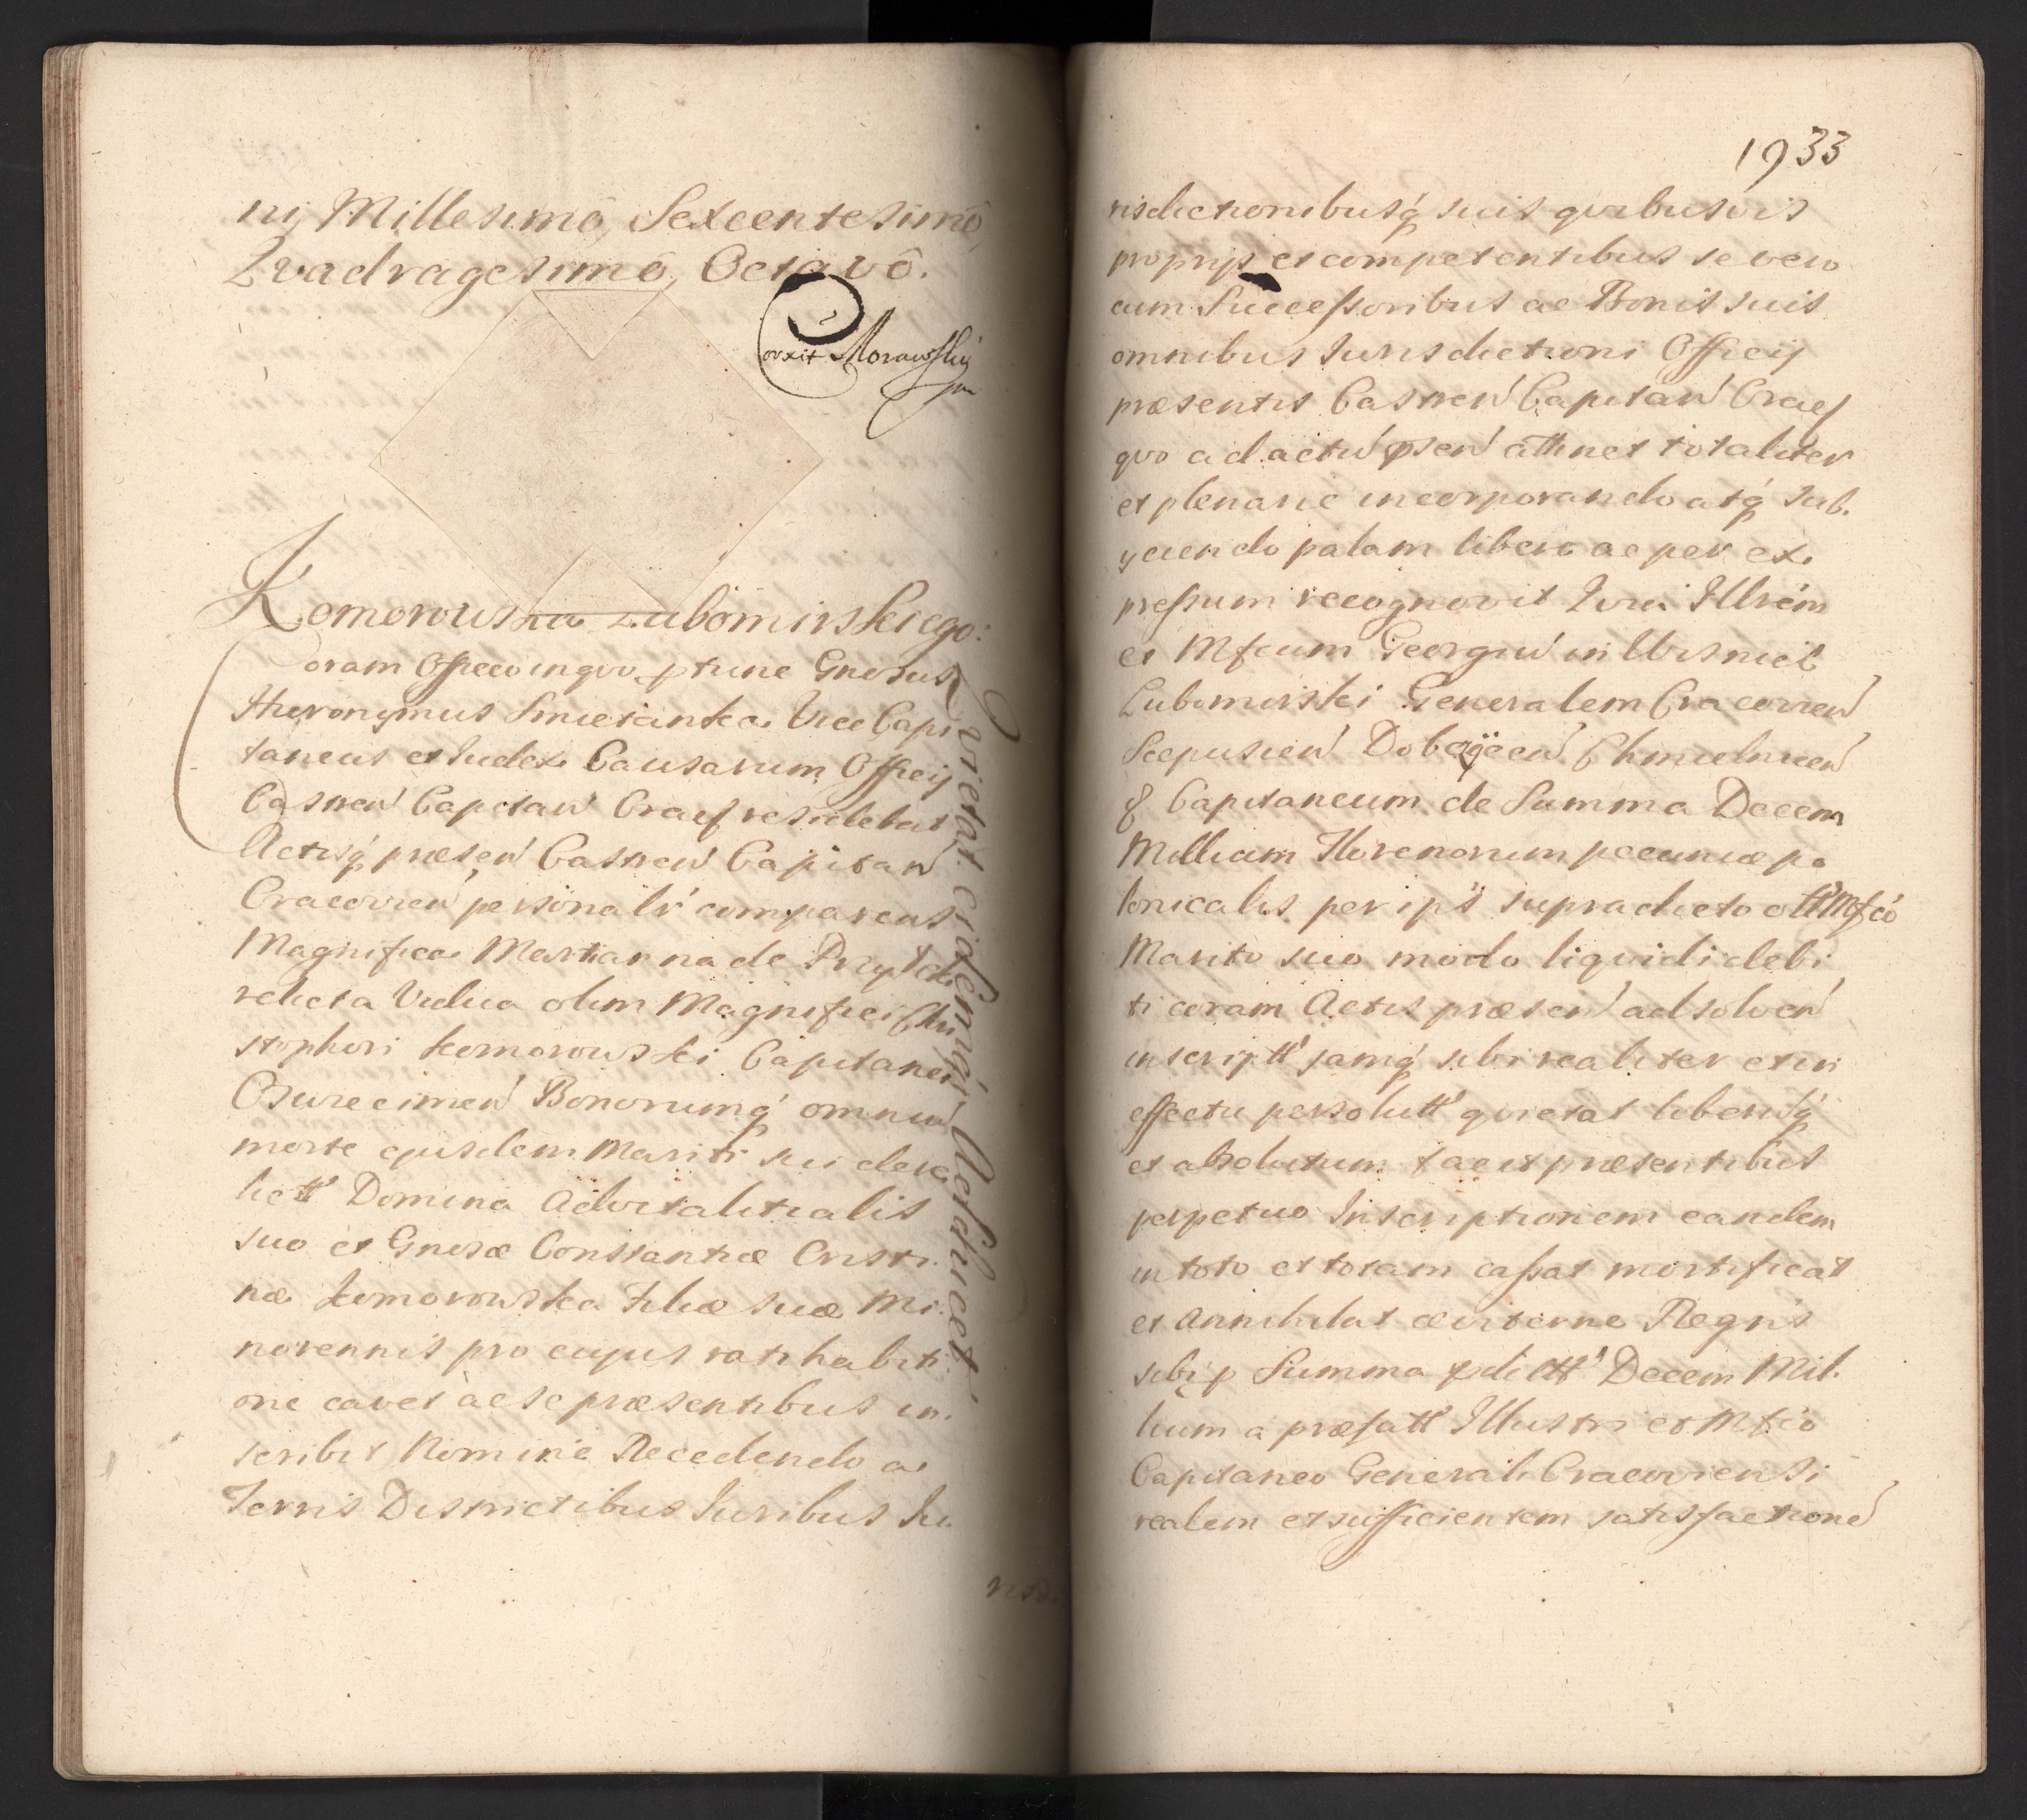 ni, Millesimô, Sexcentesimô,
Qvadragesimô, Octavô.
Corexit Morawsky
mp
Komorowska Lubomirskiego:
Coram Officio in qvo p tunc Gnosus
Hieronymus Smietanka Vice Capi
taneus et Iudex Causarum Officij
Castren Capitan Cracf residebat
Actisq́ præsen Castren Capitan
Cracovien personalr comparens
Magnifica Marianna de Przyłek
relicta Vidua olim Magnifici Chri
stophori Komorowski Capitanei
Oswiecimen Bonorumq́ omniu
morte ejusdem Mariti sui dere
lictt Domina Advitalitialis
suo et Gnosæ Constantiæ Cristi
næ Komorowska Filiæ suæ Mi
norennis pro cujus ratihabiti
one cavet ac se præsentibus in.
scribit Nomine Recedendo a
Terris Districtibus Iuribus Iu.
risd.
qvietat eidem
Adhuc
1933
risdictionibusq́ suis qvibusvis
proprijs et competentibus se vero
cum Successoribus ac Bonis suis
omnibus Iurisdictioni Officij
præsentis Castren Capitan Cracf
qvo ad actu psen attinet totaliter
et plenarie incorporando atq́ sub.
yciendo palam libere ac per ex
pressum recognovit Qvia Illrem
et Mfcum Georgiu in Wisnicz
Lubomirski Generalem Cracovien
Scepusien Dobczycen Chmielnicen
& Capitaneum de Summa Decem
Millium Florenorum pecuniæ po
lonicalis per ips supradicto oltt Mfco
Marito suo modo liquidi debi
ti coram Actis præsen ad solven
inscriptt jamq́ sibi realiter et in
effectu persolutt qvietat liberuq́
et absolutum facit præsentibus
perpetuo Inscriptionem eandem
in toto et totam cassat mortificat
et Annihilat æviterne Regnis
sibi p Summa pdictt Decem Mil.
lium a præfatt Illustri et Mfco
Capitaneo Generali Cracoviensi
realem et sufficientem satisfactione